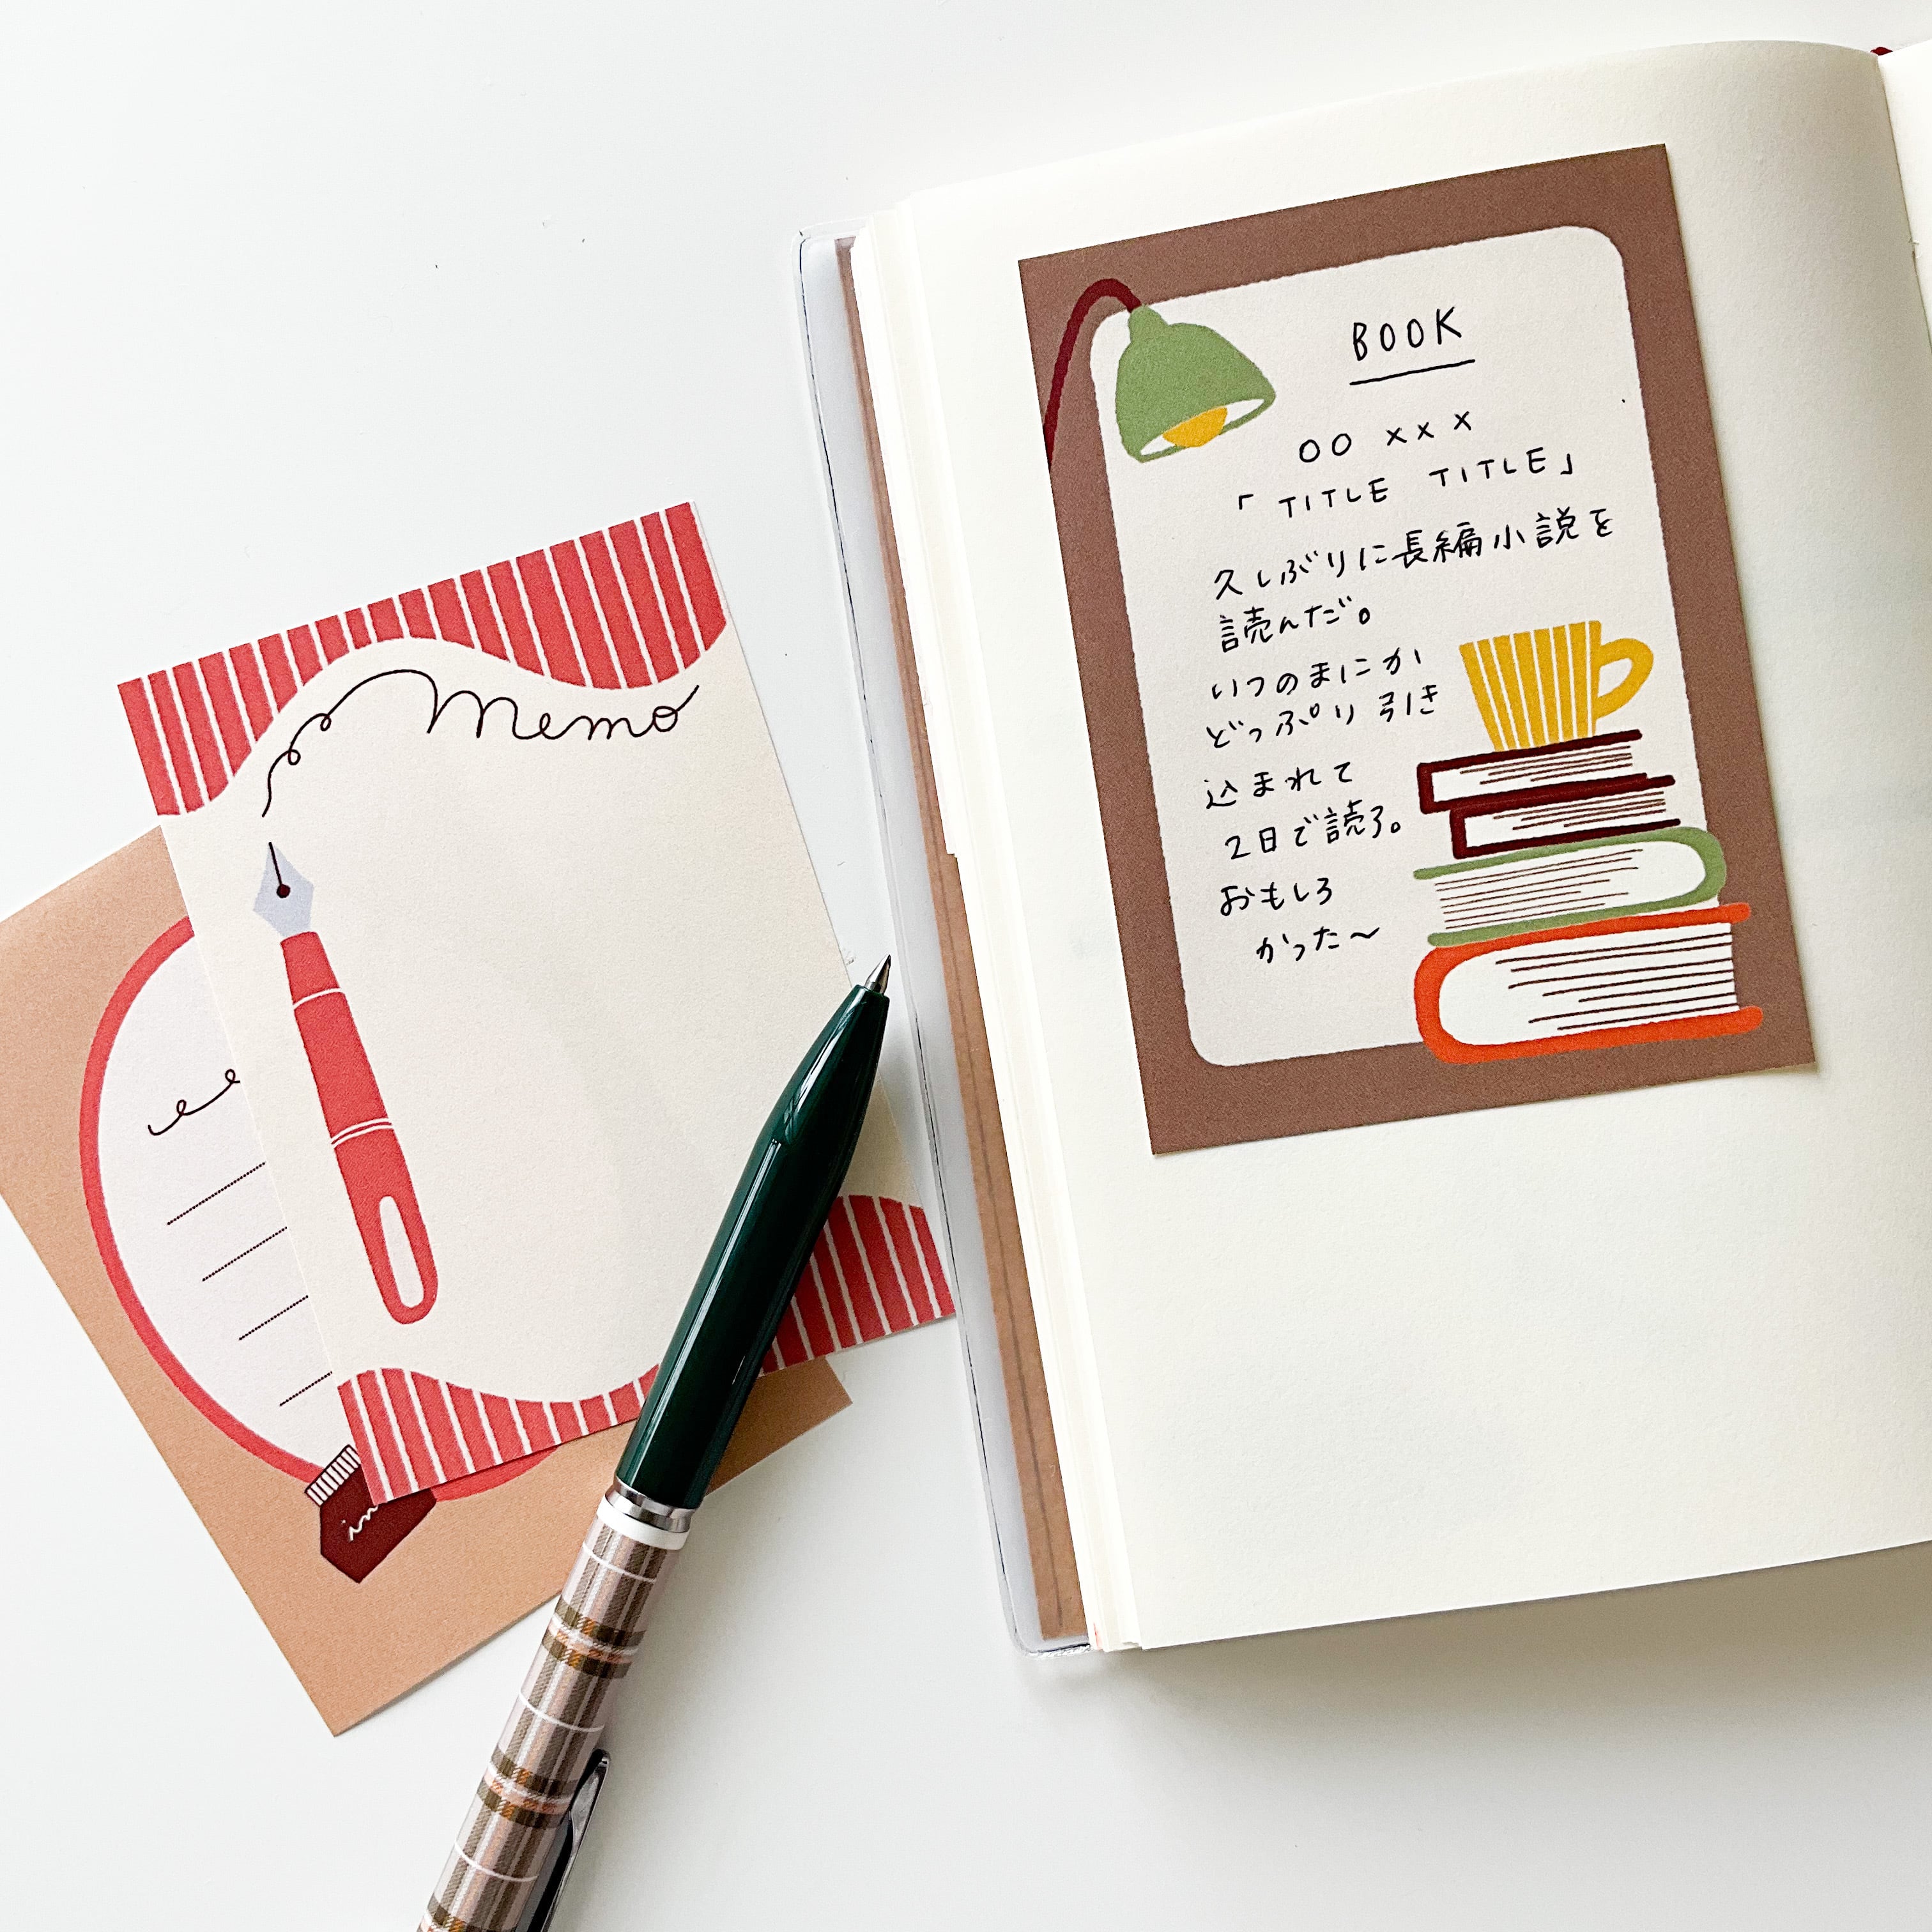 memo
BOOK
○○ ×××
「TITLE TITLE」
久しぶりに長編小説を
読んだ。
いつのまにか
どっぷり引き
込まれて
2日で読了。
おもしろ
かった〜